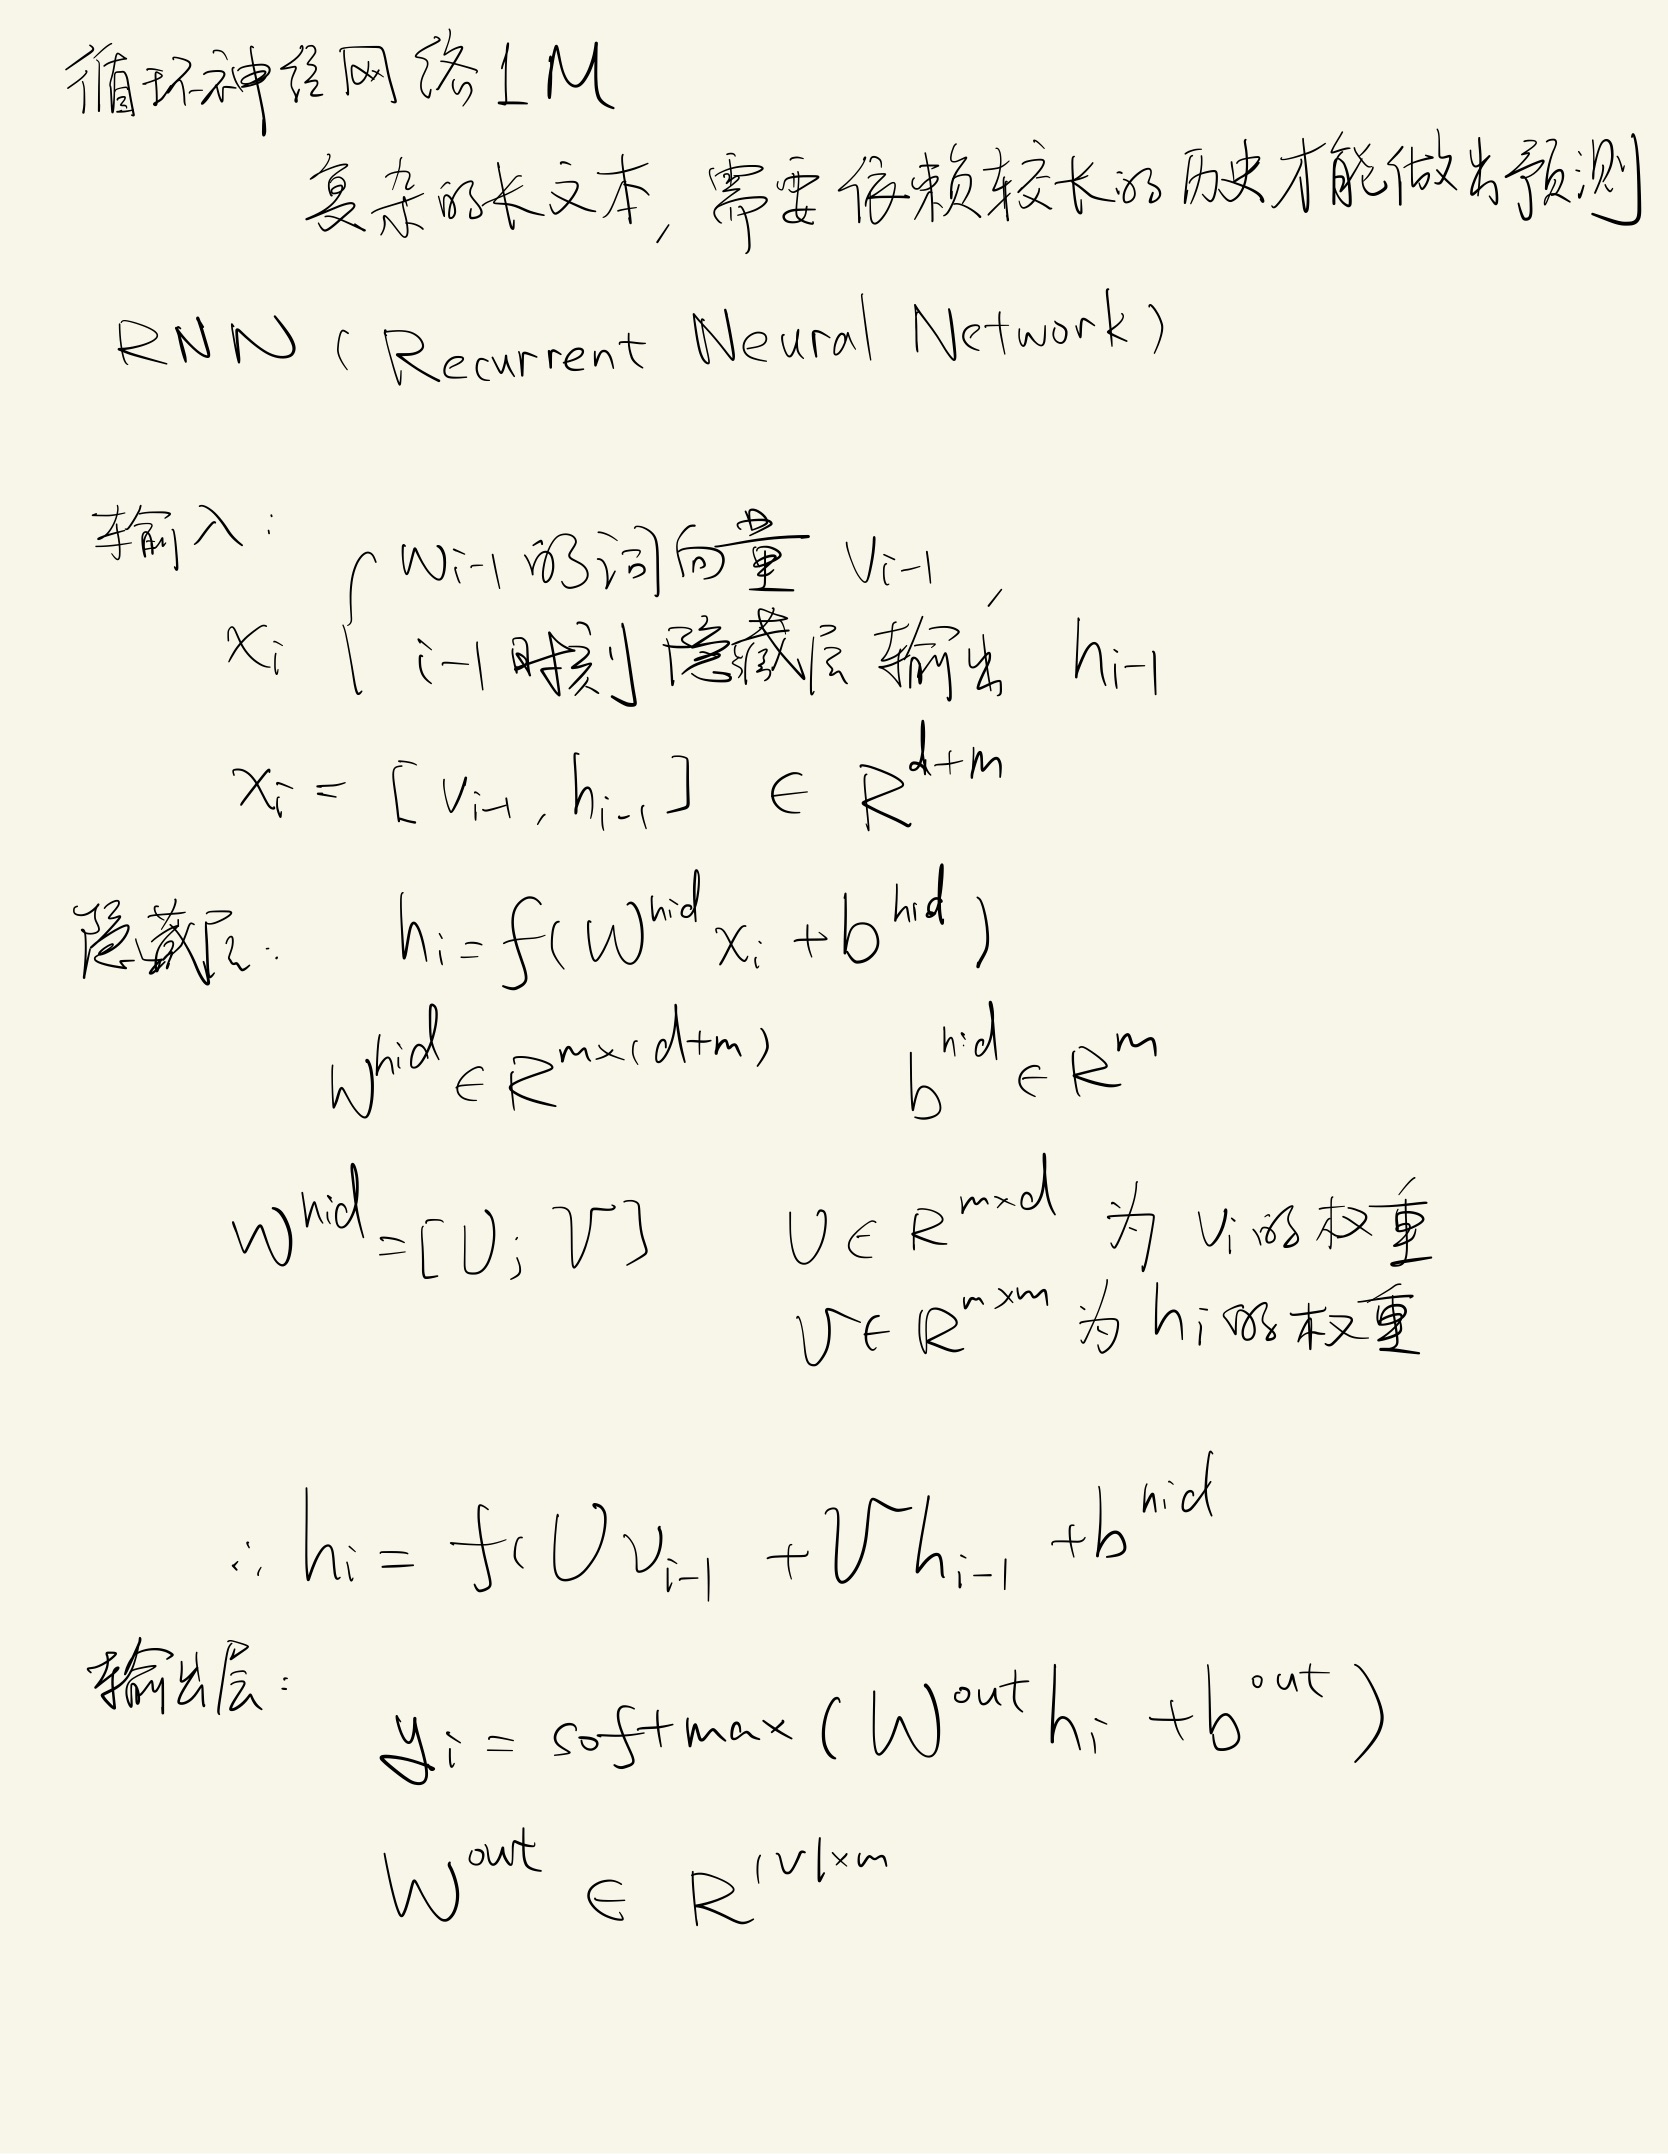 循环神经网络LM
复杂的长文本,需要依赖较长的历史才能做出预测
RNN (Recurrent Neural Network)
输入:
w_{i-1}的词向量 v_{i-1},
x_i {
i-1时刻隐藏层输出 h_{i-1}
x_i = [v_{i-1}, h_{i-1}] ∈ R^{d+m}
隐藏层: h_i = f(W^{hid} x_i + b^{hid})
W^{hid} ∈ R^{m×(d+m)} b^{hid} ∈ R^m
W^{hid} = [U; V] U ∈ R^{m×d} 为 v_i的权重
V ∈ R^{m×m} 为 h_i的权重
∴ h_i = f(U v_{i-1} + V h_{i-1} + b^{hid}
输出层:
y_i = softmax(W^{out} h_i + b^{out})
W^{out} ∈ R^{|V|×m}